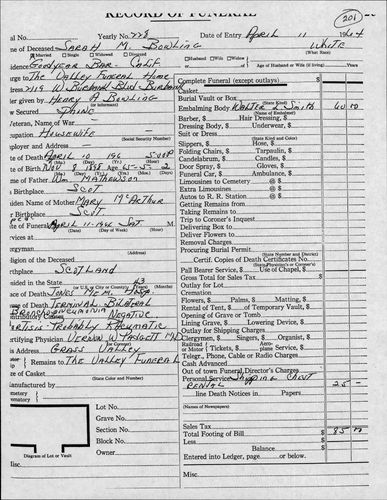 RECORD OF FUNERAL
201
al No. Yearly No. 228 Date of Entry April 11 1964
me of Deceased Sarah M. Bowling White
Married Single Widowed Divorced (What Race)
idence Goodyear Bar - Calif. Husband Wife Widow of Age of Husband or Wife (if living) years
rge to The Valley Funeral Home
ress 2115 W. Burbank Blvd - Burbank
er given by Henry A Bowling
w Secured Phone
Veteran, Name of War
upation Housewife
(Social Security Number)
ployer and Address
te of Death April 10 196
te of Birth Nov
me of Father Wm Mathewson
s Birthplace Scot
iden Name of Mother Mary McArthur
r Birthplace Scot
e of Funeral April 11-1964 Sat M.
(Date) (Day of Week) (Hour)
vices at
rgyman
(Address)
igion of the Deceased
rthplace Scotland
sided in the State 63
(or U.S., or City or County) (Years) (Months)
ace of Death Jones Mem. Hosp
use of Death Terminal Bilateral
Bronchopneumonia
ntributory Causes Negative
Probably Rheumatic
ertifying Physician Vernon W Padgett MD
is Address Grass Valley
Remains to The Valley Funeral
ze of Casket
(State Color and Number)
anufactured by
metery
rematory
Lot No.
Grave No.
Section No.
Block No.
Owner
Diagram of Lot or Vault
isc.
Complete Funeral (except outlays) $
Casket
Burial Vault or Box
(State Kind)
Embalming Body Walter L Smith 60 00
(Name of Embalmer)
Barber, $ Hair Dressing, $
Dressing Body, $ Underwear, $
Suit or Dress
(State Kind and Color)
Slippers, $ Hose, $
Folding Chairs, $ Tarpaulin, $
Candelabrum, $ Candles, $
Door Spray, $ Gloves, $
Funeral Car, $ Ambulance, $
Limousines to Cemetery @ $
Extra Limousines @ $
Autos to R. R. Station @ $
Getting Remains from
Taking Remains to
Trip to Coroner's Inquest
Delivering Box to
Deliver Flowers to
Removal Charges
Procuring Burial Permit
(State Number and District)
Certif. Copies of Death Certificates No.
Pall Bearer Service, $ Use of Chapel, $
Gross Total for Sales Tax $
Outlay for Lot
Cremation
Flowers, $ Palms, $ Matting, $
Rental of Tent, $ of Temporary Vault, $
Opening of Grave or Tomb
Lining Grave, $ Lowering Device, $
Outlay for Shipping Charges
Clergymen, $ Singers, $ Organist, $
Railroad or Motor Tickets, $ Aeroplane Service, $
Telegr., Phone, Cable or Radio Charges
Cash Advanced
Out of town Funeral Director's Charges
Personal Service Shipping Chest
Rental 25 -
line Death Notices in Papers
(Names of Newspapers)
Sales Tax
Total Footing of Bill $ 85 00
Less $
Balance $
Entered into Ledger, page or below.
Misc.